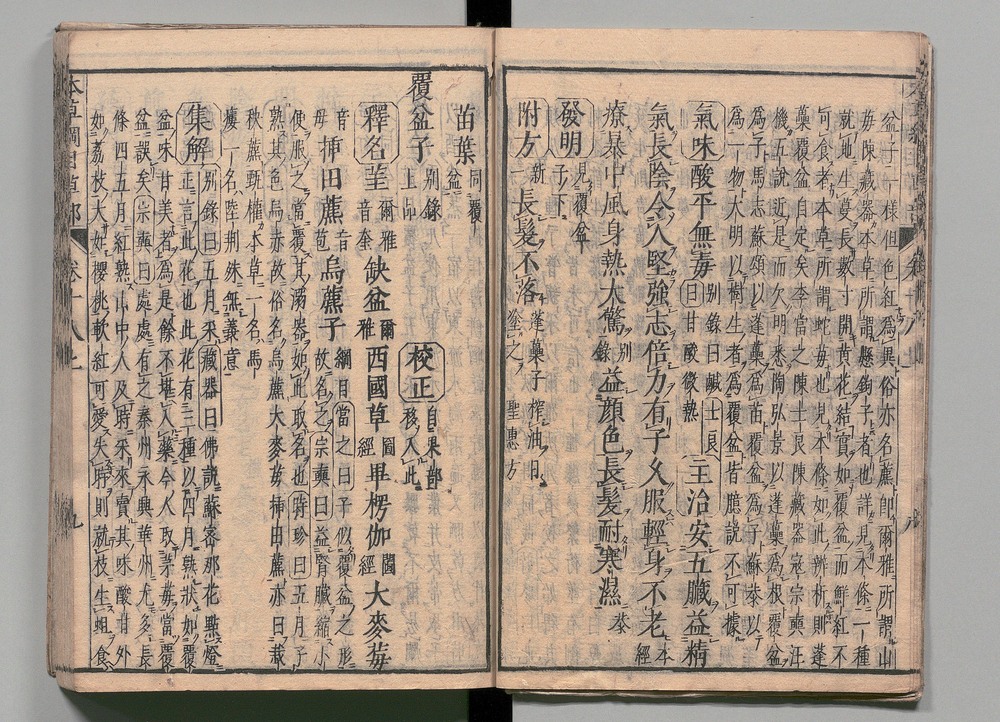 盆子一樣但色紅爲異俗亦名藨即爾雅所謂山
毋陳藏器本草所謂懸鉤子者也詳見本條一種
就地生蔓長數寸開黃花結實如覆盆而鮮紅不
可食者本草所謂蛇毋也見本條如此辨析則蓬
藟覆盆自定矣李當之陳士良陳藏器寇宗奭汪
機五說近是而欠明悉陶弘景以蓬藟爲根覆盆
爲子馬志蘇頌以蓬藟爲苗覆盆爲子蘇恭以
爲一物大明以樹生者爲覆盆皆臆說不可據
氣味酸平無毒別錄曰鹹士良曰甘酸微熱主治安五臟益精
氣長陰令人堅強志倍力有子久服輕身不老本經
療暴中風身熱大驚別錄益顏色長髮耐寒濕恭
發明見覆盆子下
附方新一長髮不落蓬藟子榨油日塗之聖惠方
苗葉同覆盆
覆盆子別錄上品校正自果部移入此
釋名堇爾雅音奎缺盆爾雅西國草圖經畢楞伽圖經大麥莓
音母插田藨音苞烏藨子綱目當之曰子似覆盆之形
故名之宗奭曰益腎臟縮小
便服之當覆其溺器如此取名也時珍曰五月子
熟其色烏赤故俗名烏藨大麥莓插田藨亦曰栽
秧藨甄權本草一名馬
瘻一名陸荆殊無義意
集解別錄曰五月采藏器曰佛說蘇密那花點燈
正言此花也此花有三種以四月熟狀如覆
盆味甘美者爲是餘不堪入藥今人取茅莓當覆
盆誤矣宗奭曰處處有之秦州永興華州尤多長
條四五月紅熟山中人及時采來賣其味酸甘外
如荔枝大如櫻桃軟紅可愛失時則就枝生蛆食
本草綱目草部 卷十八上 九